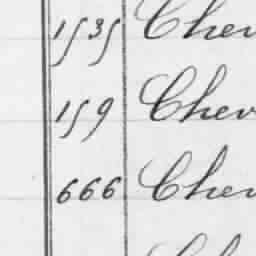 1535 Chev
159 Chev
666 Chev